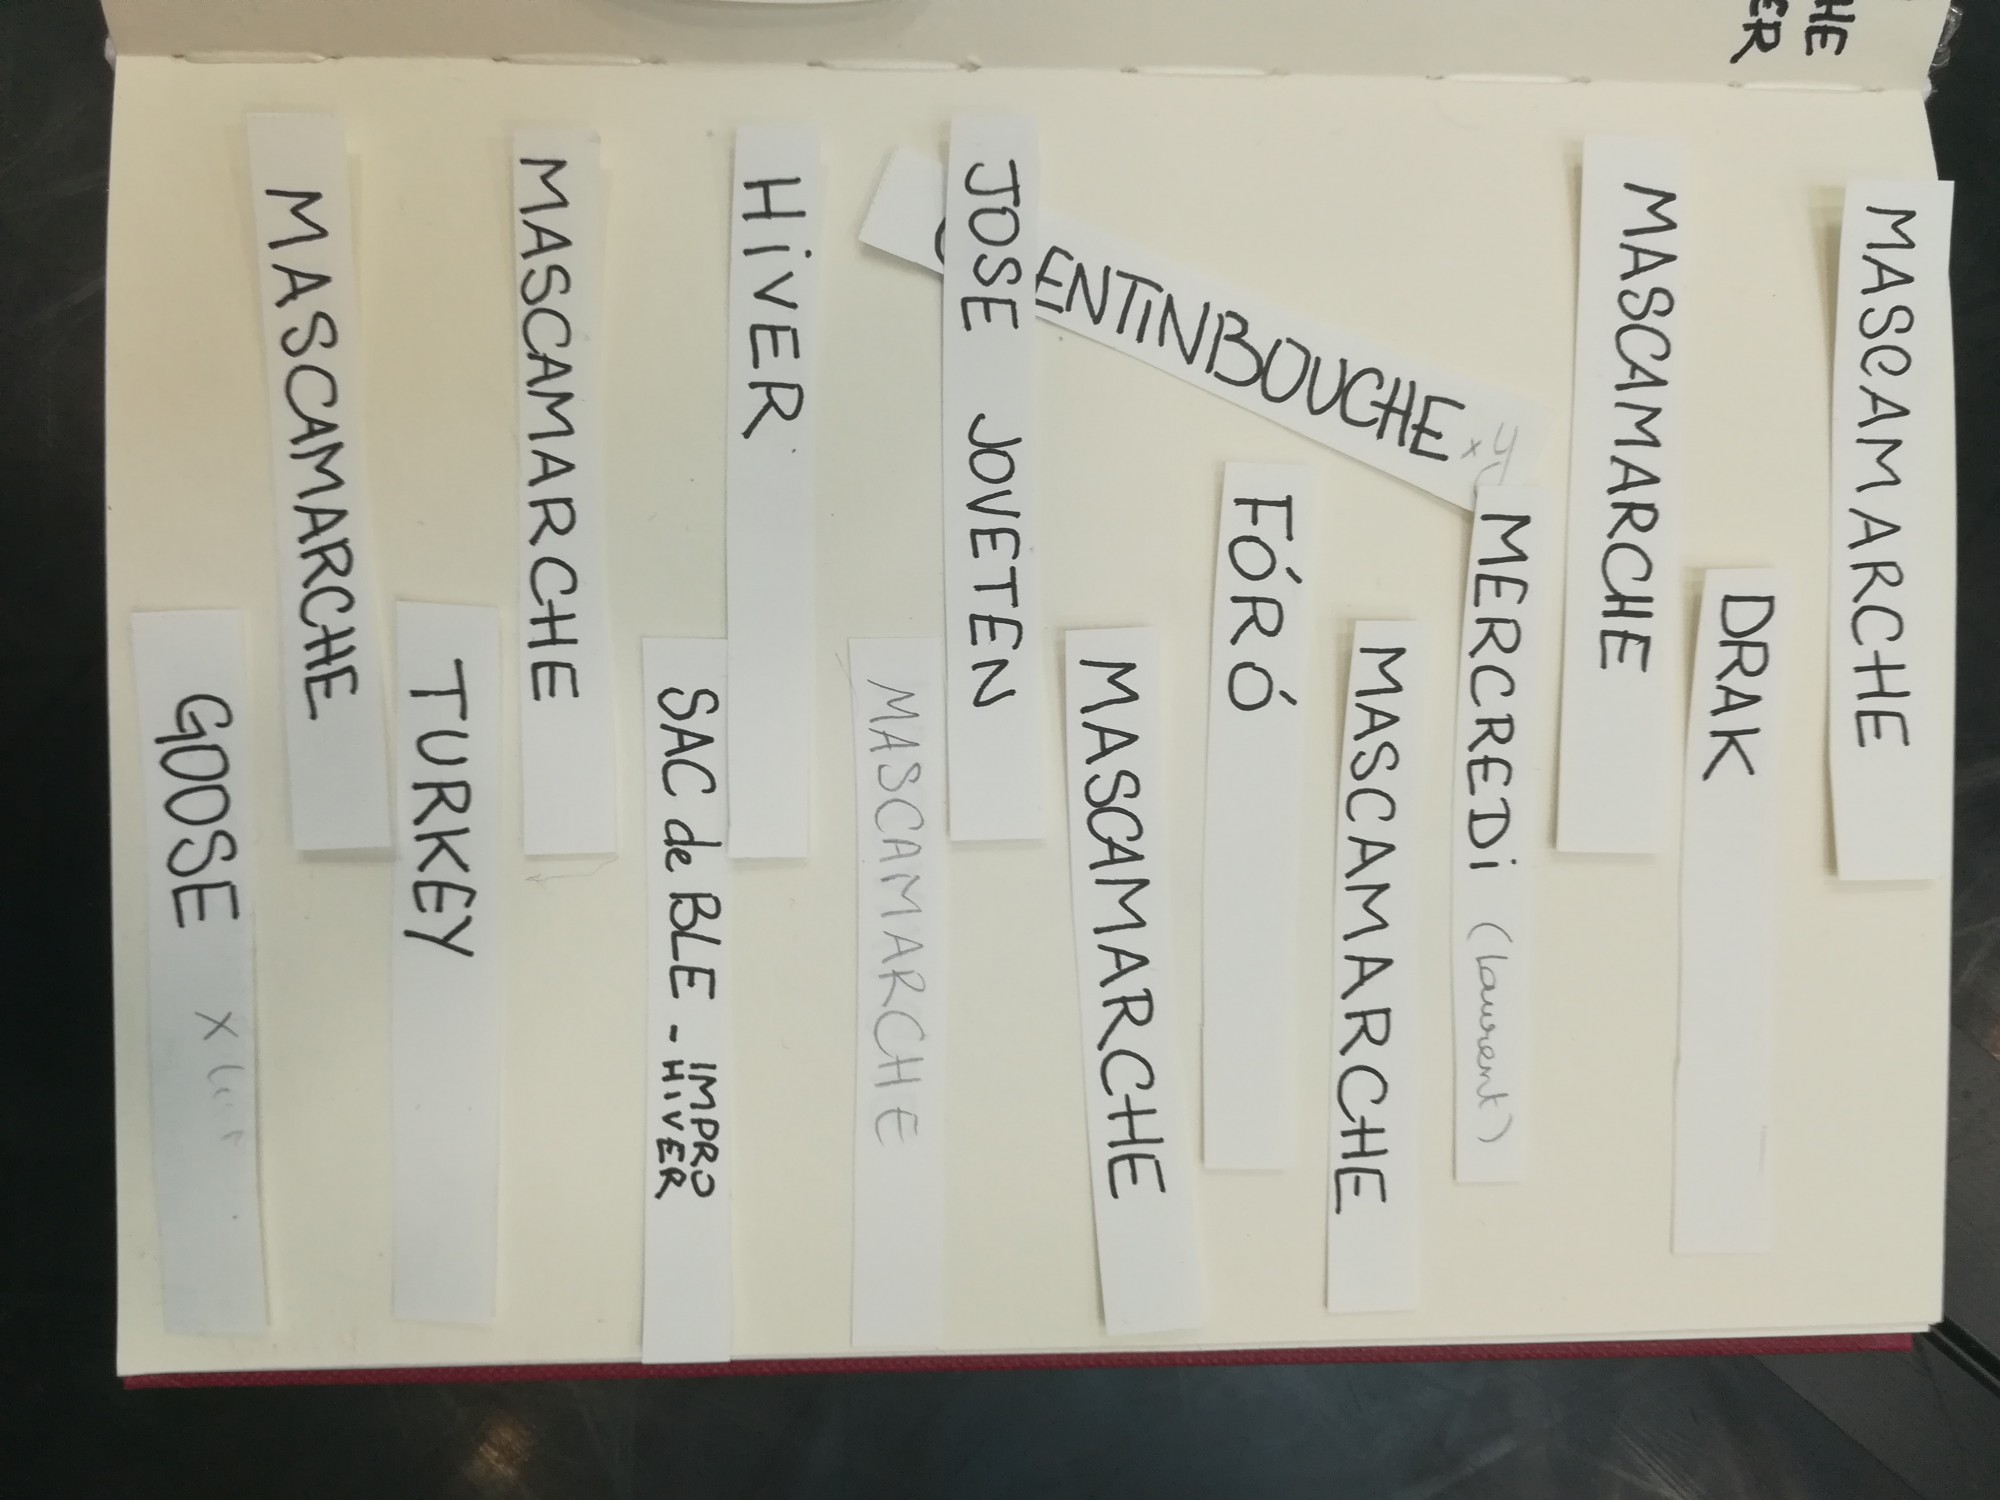 HE
ER
MASCAMARCHE
DRAK
MASCAMARCHE
MERCREDi (laurent)
ENTiNBOUCHE x
MASCAMARCHE
FÓRÓ
MASCAMARCHE
JOSE JOVETEN
MASCAMARCHE
HiVER
SAC de BLE - IMPRO
HiVER
MASCAMARCHE
TURKEY
MASCAMARCHE
GOOSE x